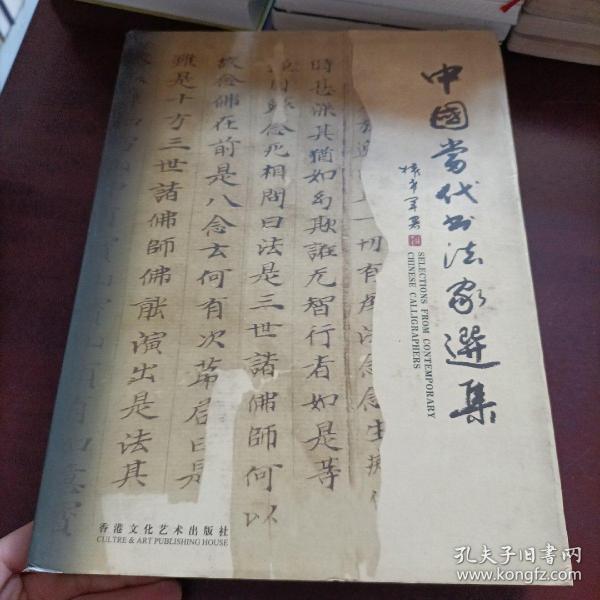 中國當代书法家選集
SELECTIONS FROM CONTEMPORARY
CHINESE CALLIGRAPHERS
一切有
念念生
時甚深其猶如幻欺誰无智行者如是等
念死相問曰法是三世諸佛師何以
故念佛在前是八念云何有次苐荅曰是
雖是十方三世諸佛師佛能演出是法其
香港文化艺术出版社
CULTRE & ART PUBLISHING HOUSE
孔夫子旧书网
www.kongfz.com